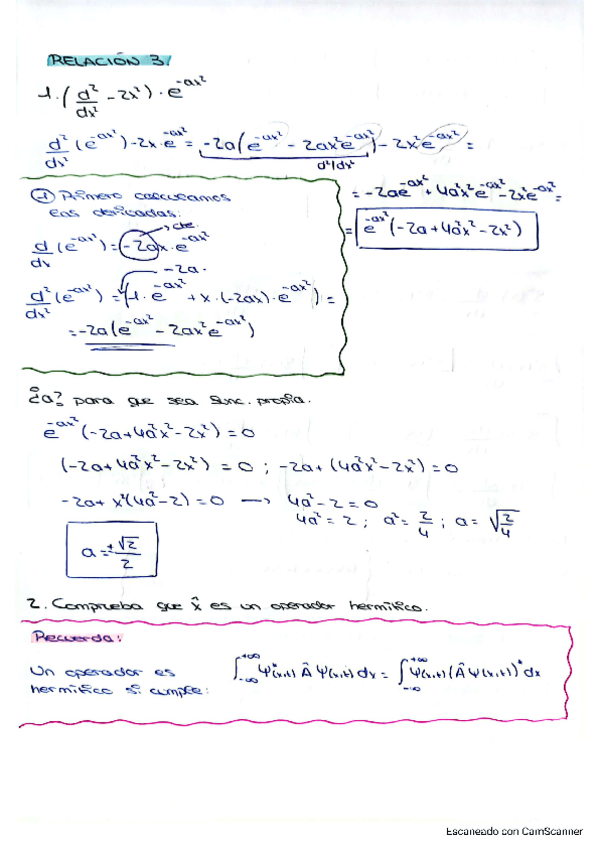 RELACIÓN 3.
1. (d²/dx² - 2x²) · e^(-ax²)
d²/dx² (e^(-ax²)) - 2x · e^(-ax²) = -2a(e^(-ax²) - 2ax²e^(-ax²)) - 2x²e^(-ax²) =
d²/dx²
= -2ae^(-ax²) + 4a²x²e^(-ax²) - 2x²e^(-ax²) =
= e^(-ax²) (-2a + 4a²x² - 2x²)
① Primero calculamos
las derivadas:
cte.
d/dx (e^(-ax²)) = -2ax · e^(-ax²)
-2a.
d²/dx² (e^(-ax²)) = (1 · e^(-ax²) + x · (-2ax) · e^(-ax²)) =
= -2a(e^(-ax²) - 2ax²e^(-ax²))
¿a? para que sea func. propia.
e^(-ax²) (-2a + 4a²x² - 2x²) = 0
(-2a + 4a²x² - 2x²) = 0 ; -2a + (4a²x² - 2x²) = 0
-2a + x²(4a² - 2) = 0 → 4a² - 2 = 0
4a² = 2 ; a² = 2/4 ; a = √(2/4)
a = ±√2/2
2. Comprueba que x̂ es un operador hermítico.
Recuerda:
Un operador es
hermítico si cumple:
∫_(-∞)^(+∞) Ψ*(x,t) Â Ψ(x,t) dx = ∫_(-∞)^(+∞) Ψ(x,t) (Â Ψ(x,t))* dx
Escaneado con CamScanner